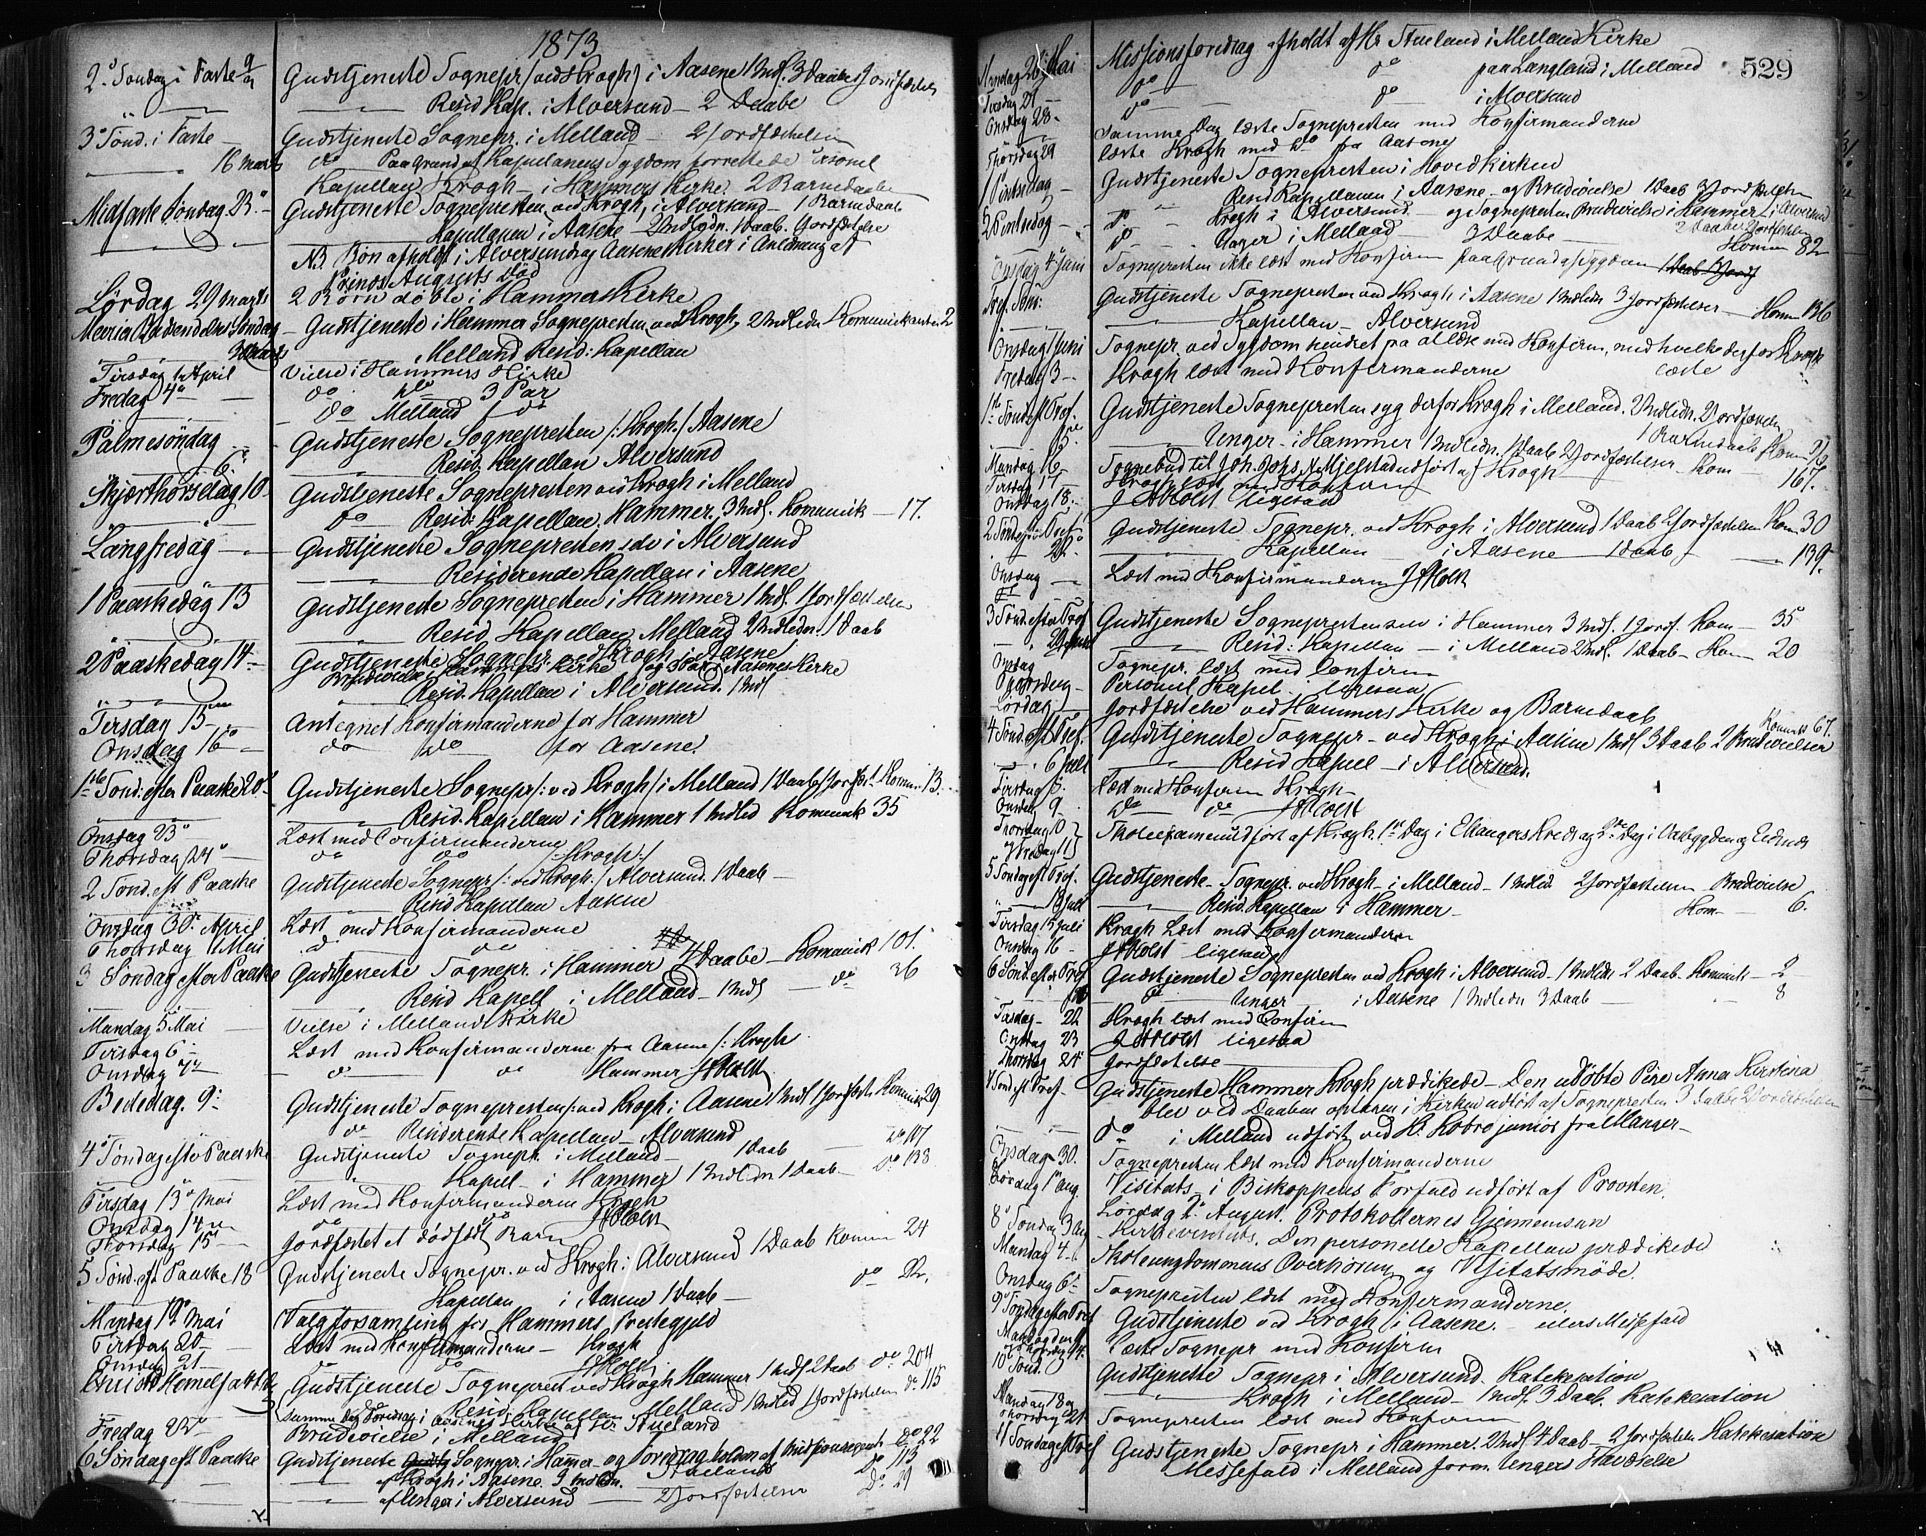 1873
2. Søndag i Faste 9/3 Gudstjeneste Sognepr. (ved Krogh) i Aasene 1 Indl. 3 Daabe Jordfæstelse
Resid. Kap. i Alversund – 2 Daabe
3 Sønd. i Faste – Gudstjeneste Sognepr. i Melland – 2 Jordfæstelser
16 marts do Paa Grund af Kapellanens Sygdom forrettede Personel
Kapellan Krogh – i Hammers Kirke. 2 Barnedaabe
Midfaste Søndag 23. – Gudstjeneste Sognepresten ved Krogh, i Alversund – 1 Barnedaab
Kapellanen i Aasene – 2 Indledn. 1 Daab. Jordfæstelse
NB. Bøn afholdt i Alversund og Aasene Kirker i Anledning af
Prinds Augusts Død
Lørdag 29 marts 2 Børn døbte i Hammers Kirke
Mariæ Bebudelses Søndag – Gudstjeneste i Hammer Sognepresten ved Krogh, 2 Indledn. Komunikanter 2
30 marts Melland Resid: Kapellan
Tirsdag 1 April Vielse i Hammers Kirke
Fredag 4 – do do 3 Par
do Melland do
Palmesøndag Gudstjeneste Sognepresten /: Krogh./ Aasene
6 Resid. Kapellan Alversund
Skjærthorsdag 10 – Gudstjeneste Sognepresten ved Krogh i Melland
do Resid: Kapellan. Hammer. 3 Indl. Komunik – 17.
Langfredag – Gudstjeneste Sognepresten selv i Alversund
Residerende Kapellan i Aasene
1 Paaskedag 13 Gudstjeneste Sognepresten i Hammer 1 Indl. 1 Jordfæstelse
Resid Kapellan Melland 2 Indledn. 1 Daab
2 Paaskedag 14 – Gudstjeneste Sognepr. ved Krogh i Aasene
Brudevielse i Hammers Kirke og Aasenes Kirke
Resid. Kapellan i Alversund. 1 Indl
Tirsdag 15 Antegnet Konfirmanderne for Hammer
Onsdag 16 – do do for Aasene
1ste Sønd: efter Paaske 20 Gudstjeneste Sognepr /: ved Krogh / i Melland 1 Daab Jordfæst Komun. 13.
Resid. Kapellan i Hammer 1 Indled Komunik 35
Onsdag 23 – Læst med Confirmanderne
Thorsdag 24 – do do /: Krogh :/
2 Sønd. eft Paaske Gudstjeneste Sognepr /: ved Krogh./ Alversund. 1 Daab –
Resid Kapellan Aasene
Onsdag 30. April Læst med Konfirmanderne
Thorsdag 1 Mai do do
3 Søndag efter Paaske Gudstjeneste Sognepr. i Hammer 4 Daabe – Komunik 101.
Resid Kapell i Melland – 1 Indl – do 36
Mandag 5 Mai Vielse i Mellands Kirke
Tirsdag 6 – Læst med Konfirmanderne fra Aasene /: Krogh
Onsdag 7 – do Hammer J Holst
Bededag. 9 – Gudstjeneste Sognepresten /: ved Krogh i Aasene 1 Indl 1 Jordfæst. Komunik 29
do Residerende Kapellan – Alversund
4 Søndag efter Paaske Gudstjeneste Sognepr. i Melland – 1 Daab – do 107
Kapel – i Hammer 1 Indledn 1 Daab – do 138
Tirsdag 13 Mai Læst med Konfirmanderne Krogh
Onsdag 14 – do J Holst
Thorsdag 15 – Jordfæstet et dødfødt Barn
5 Sønd. eft Paaske 18 Gudstjeneste Sognepr. ved Krogh: Alversund 1 Daab Komun 24
Kapellan i Aasene 1 Daab – do 22.
Mandag 19 Mai Valgforsamling for Hammers Prestegjeld
Tirsdag 20 – Læst med Konfirmanderne – Krogh
Onsdag 21 – do do J Holst
Christi Himmelfartsdag Gudstjeneste Sognepresten ved Krogh Hammer 1 Indl. 2 Daab do 204
Resid Kapellan Melland 1 Indled 1 Jordfæstelse do 115
samme Dag Foredrag i Aasenes Kirke af Hr. Stueland
Fredag 23 – Brudevielse i Melland
6 Søndag eft Paaske Gudstjeneste Sognepr. i Hammer og Foredrag holden af Missionsagent do 22
af Krogh i Aasene. 9 Indledn. Stueland Do 113
af Unger i Alversund – 2 Jordfæstelser Do 29
529
Mandag 26 Mai Missionsforedrag afholdt af Hr Stueland i Melland Kirke
Tirsdag 27 – do do paa Langland i Melland
Onsdag 28 – do do i Alversund
samme Dag læste Sognepresten med Konfirmanderne
Thorsdag 29 læste Krogh med do fra Aasene
1 Pintsedag – Gudstjeneste Sognepresten i Hovedkirken
Resid Kapellanen i Aasene – og Brudevielse 1 Daab 3 Jordfæstelser
2 Pintsedag – do Krogh i Alversund – og Sognepresten Brudevielse i Hammer i Alversund
do Unger i Melland – 3 Daabe – 2 Daabe 2 Jordfæstelser Komun 82
Onsdag 4 Juni Sognepresten ikke læst med Konfirm paa Grund af Sygdom 1 Daab 3 Jordf
Tref. Sønd: Gudstjeneste Sognepresten ved Krogh i Aasene 1 Indledn 3 Jordfæstelser – Komun 136
Kapellan – Alversund
Onsdag 11 Juni Sognepr. ved Sygdom hindret fra at læse med Konfirm, med hvilke derfor Krogh
læste
Fredag 13 – Krogh læst med Konfirmanderne
1ste Sønd eft Tref. Gudstjeneste Sognepresten syg derfor Krogh i Melland. 2 Indledn. 2 Jordfæstelser
1 Barnedaab Komun 32
15 Unger – i Hammer 1 Indledn. 1 Daab 2 Jordfæstelser – Kom – 167.
Mandag 16 – Sognebud til Joh. Johs. N. Mjelstad udført af Krogh
Tirsdag 17 Krogh læst med Konfirm
Onsdag 18. – J Holst ligesaa
2 Sønd eft Tref Gudstjeneste Sognepr. ved Krogh i Alversund 1 Daab 2 Jordfæstelser Kom 30
22. Kapellan – i Aasene – 1 Daab – 139.
Onsdag Læst med Konfirmanderne J Holst
3 Sønd. efter Tref Gudstjeneste Sognepresten selv i Hammer 3 Indl. 1 Jordf. Kom – 35
29 Juni Resid: Kapellan – i Melland 2 Indl. 1 Daab – Kom 20
Onsdag Sognepr. læst med Confirm
Thorsdag – Personel Kapel. ligesaa
Lørdag – Jordfæstelse ved Hammers Kirke og Barnedaab
4 Sønd. eft Tref. Gudstjeneste Sognepr – ved Krogh i Aasene 1 Indl 3 Daab 2 Brudevielser Komunik 67.
6 Juli Resid Kapel – i Alversund.
Tirsdag 8. Læst med Konfirm Krogh –
Onsdag 9. do do J Holst
Thorsdag 10 Skoleexamen udført af Krogh. 1ste Dag i Eltangers Kreds og 2den Dag i
Fredag 11
5 Søndag eft Tref. Gudstjeneste – Sognepr. ved Krogh – i Melland – 1 Indledn 2 Jordfæstelser Brudevielse
13 Juli – Resid. Kapellan i Hammer – Kom – 6.
Tirsdag 15 Juli Krogh Læst med Konfirmanderne
Onsdag 16 – J Holst ligesaa
6 Sønd. efter Tref Gudstjeneste Sognepresten ved Krogh i Alversund – 1 Indledn 2 Daab. Komunik – 2
do Unger i Aasene 1 Indledn 3 Daab – 8
Tirsdag – 22 Krogh læst med Confirm
Onsdag 23 J Holst ligesaa
Thorsdag 24 Jordfæstelse
7 Sønd. eft Tref – Gudstjeneste Hammer Krogh prædikede – Den udøbte Pige Anna Kirstina
blev ved Daaben optagen i Kirken udført af Sognepresten 3 Daabe 2 Jordfæstelser
do i Melland udført ved Hr. Kobro junior fra Manger –
Onsdag – 30. Sognepresten læst med Konfirmanderne
Lørdag 1 Aug. Visitats i Biskoppens Forfald udført af Provsten.
Lørdag 2. August. Protokollernes Gjennemsyn
8 Søndag 3 Aug – Kirkevisitats. Den personelle Kapellan prædikede
Mandag 4. Skoleungdommens Overhøring og Visitatsmøde.
Onsdag 6 Sognepresten læst med Konfirmanderne.
9 Søndag efter Tref Gudstjeneste ved Krogh i Aasene. – ellers Messefald
Mandag den 11 og Thorsdag 14. Læste Sognepr med Konfirm
10 Sønd. Gudstjeneste Sognepr i Alversund. Katekesation
Krogh i Melland – 1 Indl. 3 Daab. Katekesation
Mandag 18 og Thorsdag 21 – Sognepresten læst med Konfirm
11 Søndag eft Tref Gudstjeneste Sognepr i Hammer. 2 Indl. 4 Daab – 2 Jordfæstelser Katekesation
Messefald i Melland form. Ungers Fravælse